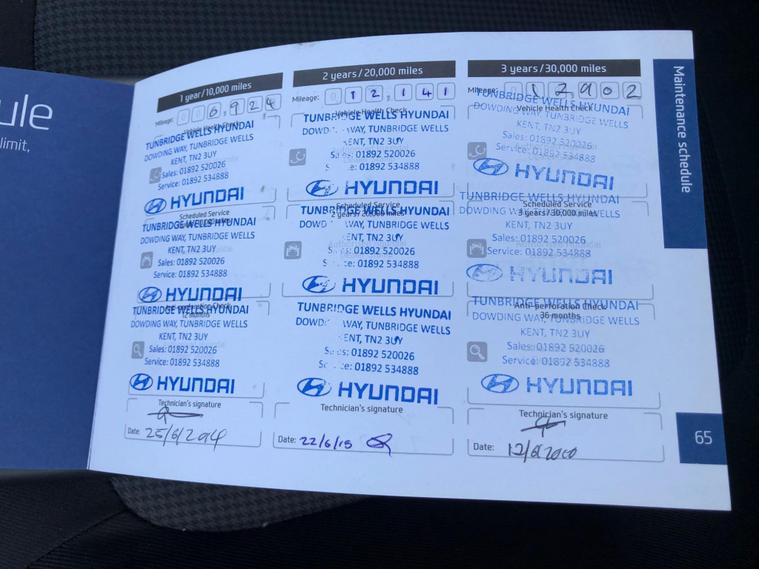 ule
limit,
1 year/10,000 miles
Mileage: 0 0 6, 9 2 4
Vehicle Health Check
TUNBRIDGE WELLS HYUNDAI
DOWDING WAY, TUNBRIDGE WELLS
KENT, TN2 3UY
Sales: 01892 520026
Service: 01892 534888
HYUNDAI
Scheduled Service
TUNBRIDGE WELLS HYUNDAI
DOWDING WAY, TUNBRIDGE WELLS
KENT, TN2 3UY
Sales: 01892 520026
Service: 01892 534888
HYUNDAI
12 months
TUNBRIDGE WELLS HYUNDAI
DOWDING WAY, TUNBRIDGE WELLS
KENT, TN2 3UY
Sales: 01892 520026
Service: 01892 534888
HYUNDAI
Technician's signature
Date:
2 years/20,000 miles
Mileage: 0 1 2, 1 4 1
Vehicle Health Check
TUNBRIDGE WELLS HYUNDAI
WAY, TUNBRIDGE WELLS
KENT, TN2 3UY
Sales: 01892 520026
01892 534888
HYUNDAI
Scheduled Service
2 years/20,000 miles
TUNBRIDGE WELLS HYUNDAI
WAY, TUNBRIDGE WELLS
KENT, TN2 3UY
01892 520026
01892 534888
HYUNDAI
TUNBRIDGE WELLS HYUNDAI
WAY, TUNBRIDGE WELLS
KENT, TN2 3UY
01892 520026
01892 534888
HYUNDAI
Technician's signature
Date: 22/6/15
3 years/30,000 miles
Mileage: 0 1 7 9 0 2
Vehicle Health Check
TUNBRIDGE WELLS HYUNDAI
DOWDING WAY, TUNBRIDGE WELLS
KENT, TN2 3UY
Sales: 01892 520026
Service: 01892 534888
HYUNDAI
Scheduled Service
3 years/30,000 miles
TUNBRIDGE WELLS HYUNDAI
DOWDING WAY, TUNBRIDGE WELLS
KENT, TN2 3UY
Sales: 01892 520026
Service: 01892 534888
HYUNDAI
Anti-perforation Check
36 months
TUNBRIDGE WELLS HYUNDAI
DOWDING WAY, TUNBRIDGE WELLS
KENT, TN2 3UY
Sales: 01892 520026
Service: 01892 534888
HYUNDAI
Technician's signature
Date:
Maintenance schedule
65